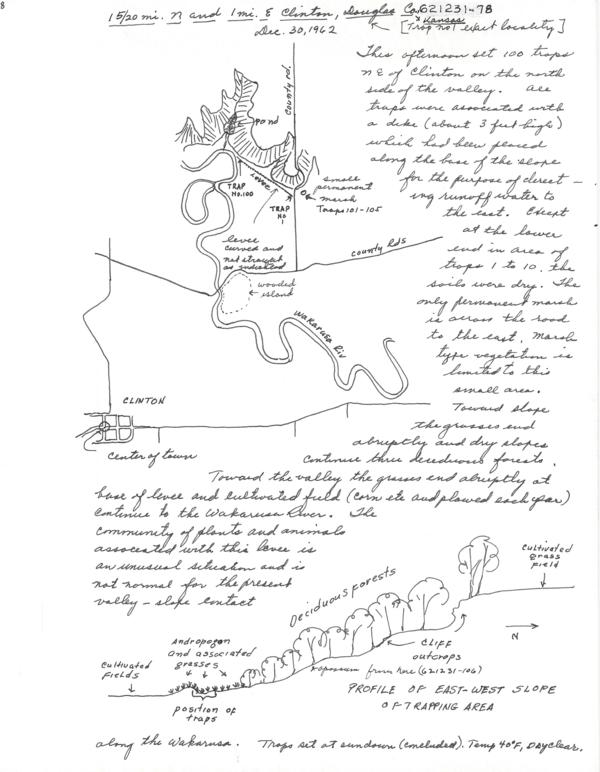 8
15/20 mi. N and 1 mi. E Clinton, Douglas Co, Kansas 621231-78
Dec. 30, 1962 [Trap no 1 exact locality]
This afternoon set 100 traps
NE of Clinton on the north
side of the valley. All
traps were associated with
a dike (about 3 feet high)
which had been placed
along the base of the slope
for the purpose of derect-
ing runoff water to
the east. Except
at the lower
end in area of
traps 1 to 10, the
soils were dry. The
only permanent marsh
is across the road
to the east. Marsh
type vegetation is
limited to this
small area.
Toward slope
the grasses end
abruptly and dry slopes
continue thru deceduous forests.
Toward the valley the grasses end abruptly at
base of levee and cultivated field (corn etc and plowed each year)
continue to the Wakarusa River. The
community of plants and animals
associated with this levee is
an unusual situation and is
not normal for the present
valley-slope contact
along the Wakarusa. Traps set at sundown (concluded). Temp 40°F, Day clear.
County rd.
Pond
Levee
TRAP
NO. 100
TRAP
NO
1
small
permanent
marsh
Traps 101-105
levee
curved and
not straight
as indicated
County Rds
wooded
island
Wakarusa Riv
CLINTON
Center of town
Deciduous Forests
Cultivated
grass
field
N
Andropogon
and associated
grasses
Cultivated
Fields
position of
traps
CLIFF
outcrops
opossum from here (621231-106)
PROFILE OF EAST-WEST SLOPE
OF TRAPPING AREA